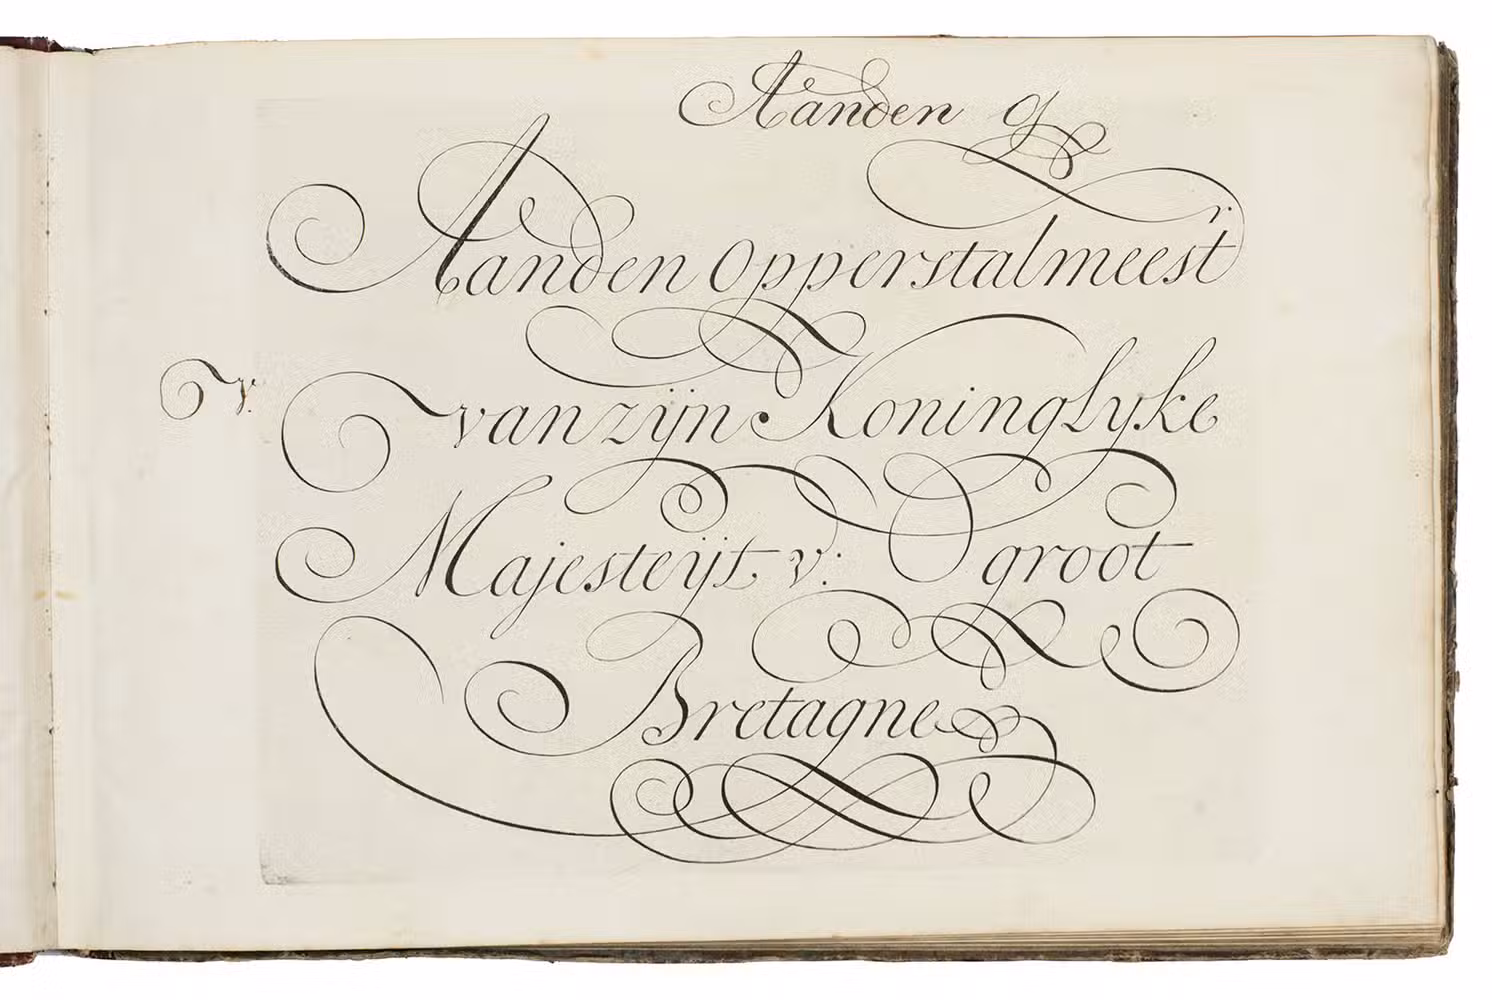 Aanden O
Aanden Opperstalmeestr.
v. van zijn Koninglyke
Majesteijt v: groot
Bretagne